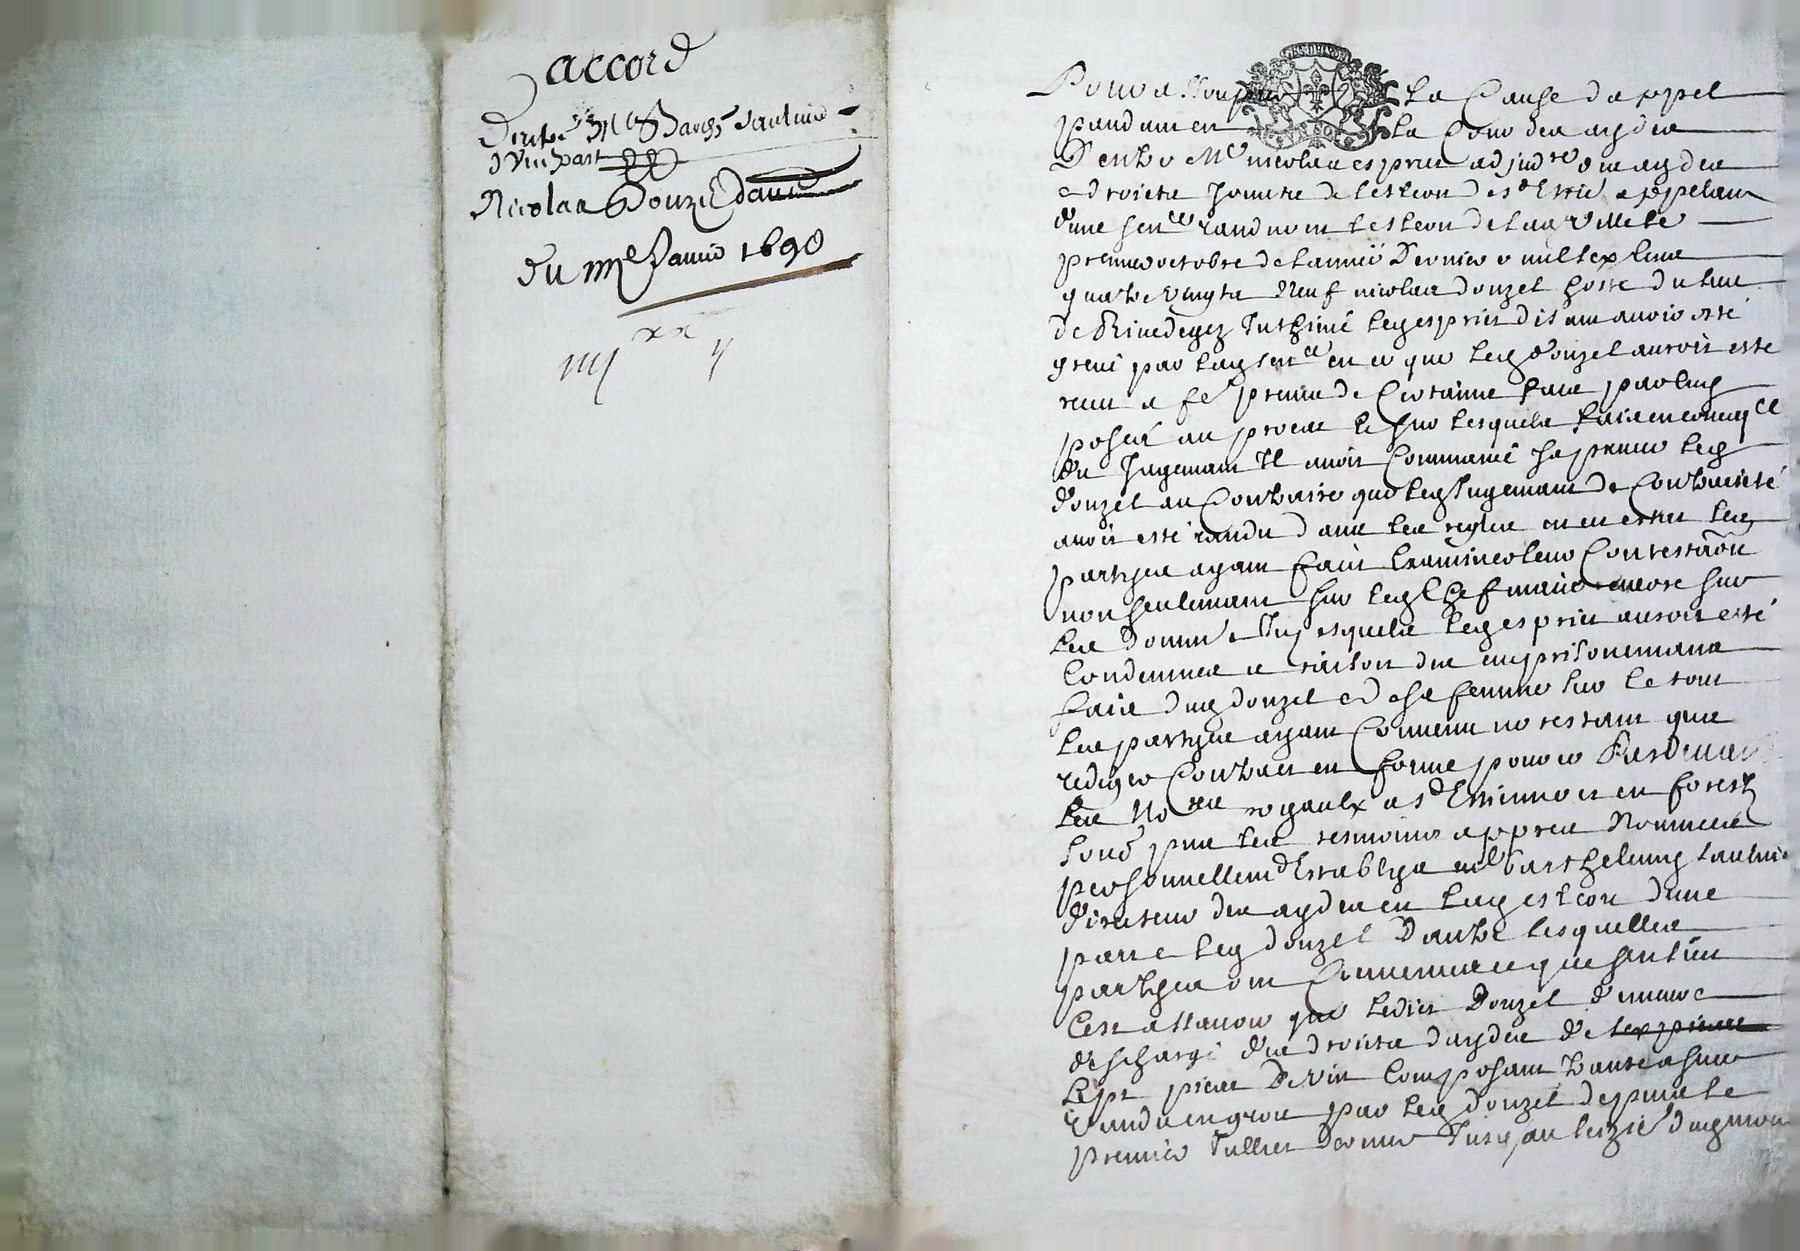 accord
Entre Me Barth Saulnier
d'vne part Et
Nicolas Douzel d'autre
du iiije Januier 1690
iiij xx ij
Pour assoupir La Cause dappel
pendante en La Cour des aydes
Entre Me nicolas esprit adjudre des aydes
et droicts Joincts de leslection de st Estiē appelant
dune sence rendue en leslection de lad ville le
premier octobre de lannee Dernier mil six cens
quatre vingts Neuf nicolas douzel hoste du lieu
de Rivedegez Inthimé led esprit disant auoir esté
greué par lad sence en ce que led douzel auroit esté
receu a fe preuue de Certains faits par luy
posés au proces et sur lesquels faits en consequce
du Jugement Il auoit Commancé sa preuue led
douzel au Contraire que led Jugement de Contrarieté
auoit esté rendu dans les regles ou en estat les
partyes ayant faict Examiner leur Contestaōn
non seulement sur led chef mais encore sur
les domm. Int. esquels led esprit auroit esté
Condemné a raison des emprisonnemans
faits dud douzel et de sa femme sur le tout
les partyes ayant Conuenu ne restant que
rediger Contract en forme pardeuant
Les Nores royaulx a st Estienne en forestz
soubz. pnt les tesmoins appres Nommés
personnellemt Establys me barthelemy saulnier
directeur des aydes en lad eslection dune
part et led douzel dautre lesquelles
partyes ont Conuenu ce que sensuit
Cest assauoir que ledict Douzel demeure
deschargé des droicts daydes de
sept pieces de vin Composant trante asnées
vandu en gros par led douzel depuis le
premier Juillet dernier Jusqau seizē dud mois